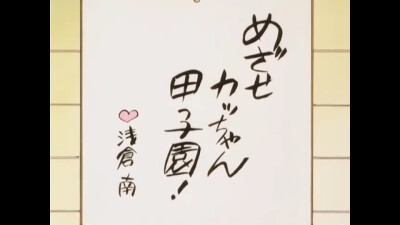 めざせ
カッちゃん
甲子園!
♡浅倉南